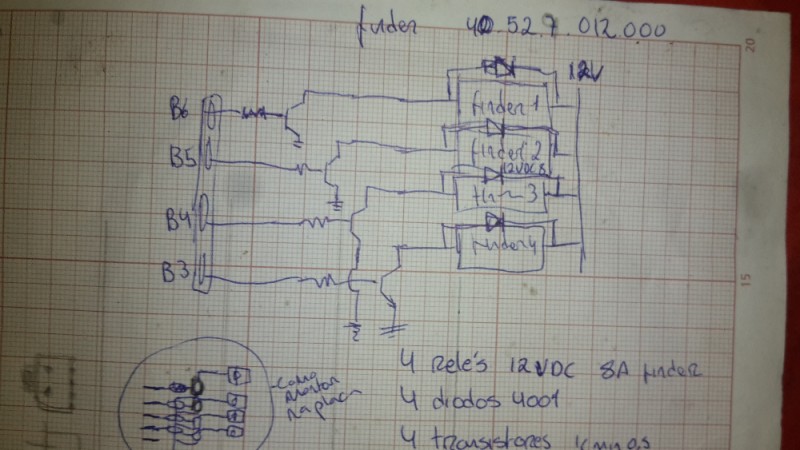 finder 40.52.7.012.000
20
12V
B6
finder 1
B5
finder 2
12VDC 8
3
B4
finder 4
B3
15
4 relés 12VDC 8A finder
como
montar
na placa
4 diodos 4001
4 transistores